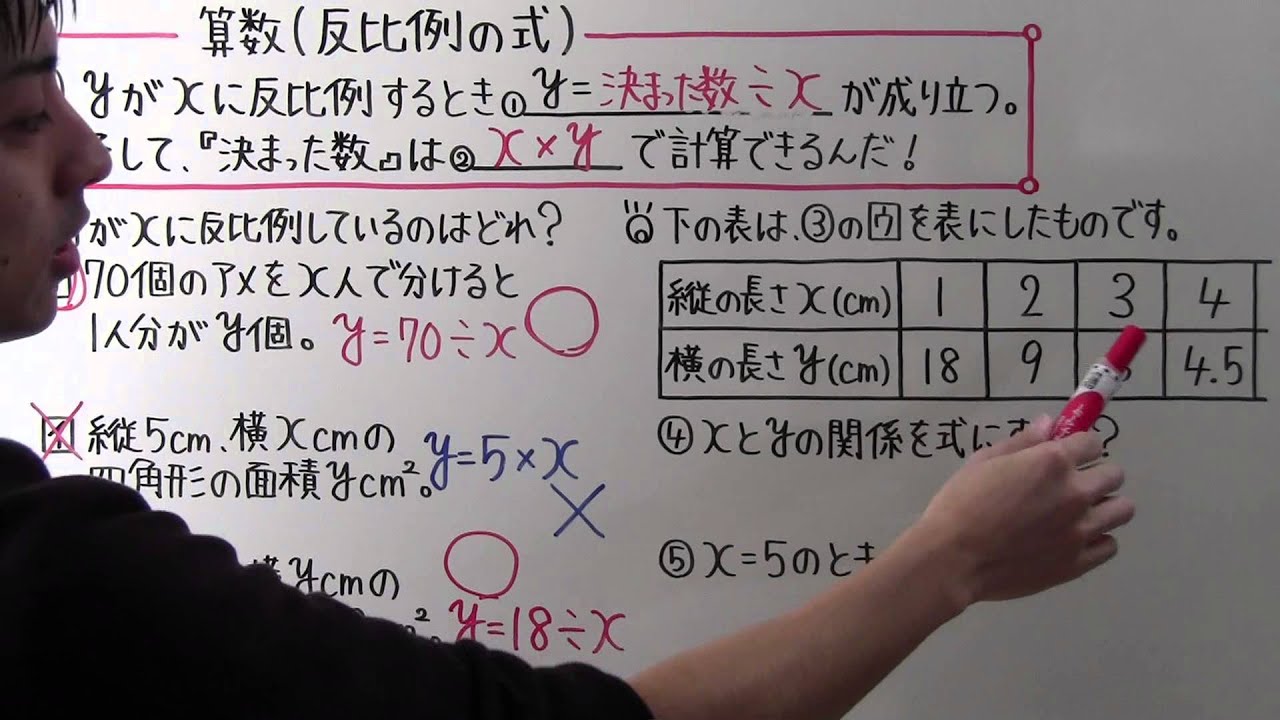 算数(反比例の式)
yがxに反比例するとき① y=決まった数÷x が成り立つ。
して、『決まった数』は② x×y で計算できるんだ!
がxに反比例しているのはどれ?
70個のアメをx人で分けると
1人分がy個。 y=70÷x
縦5cm、横xcmの
四角形の面積ycm²。 y=5×x
横ycmの
y=18÷x
下の表は、③のウを表にしたものです。
縦の長さx(cm) 1 2 3 4
横の長さy(cm) 18 9 4.5
④xとyの関係を式に
?
⑤x=5のとき